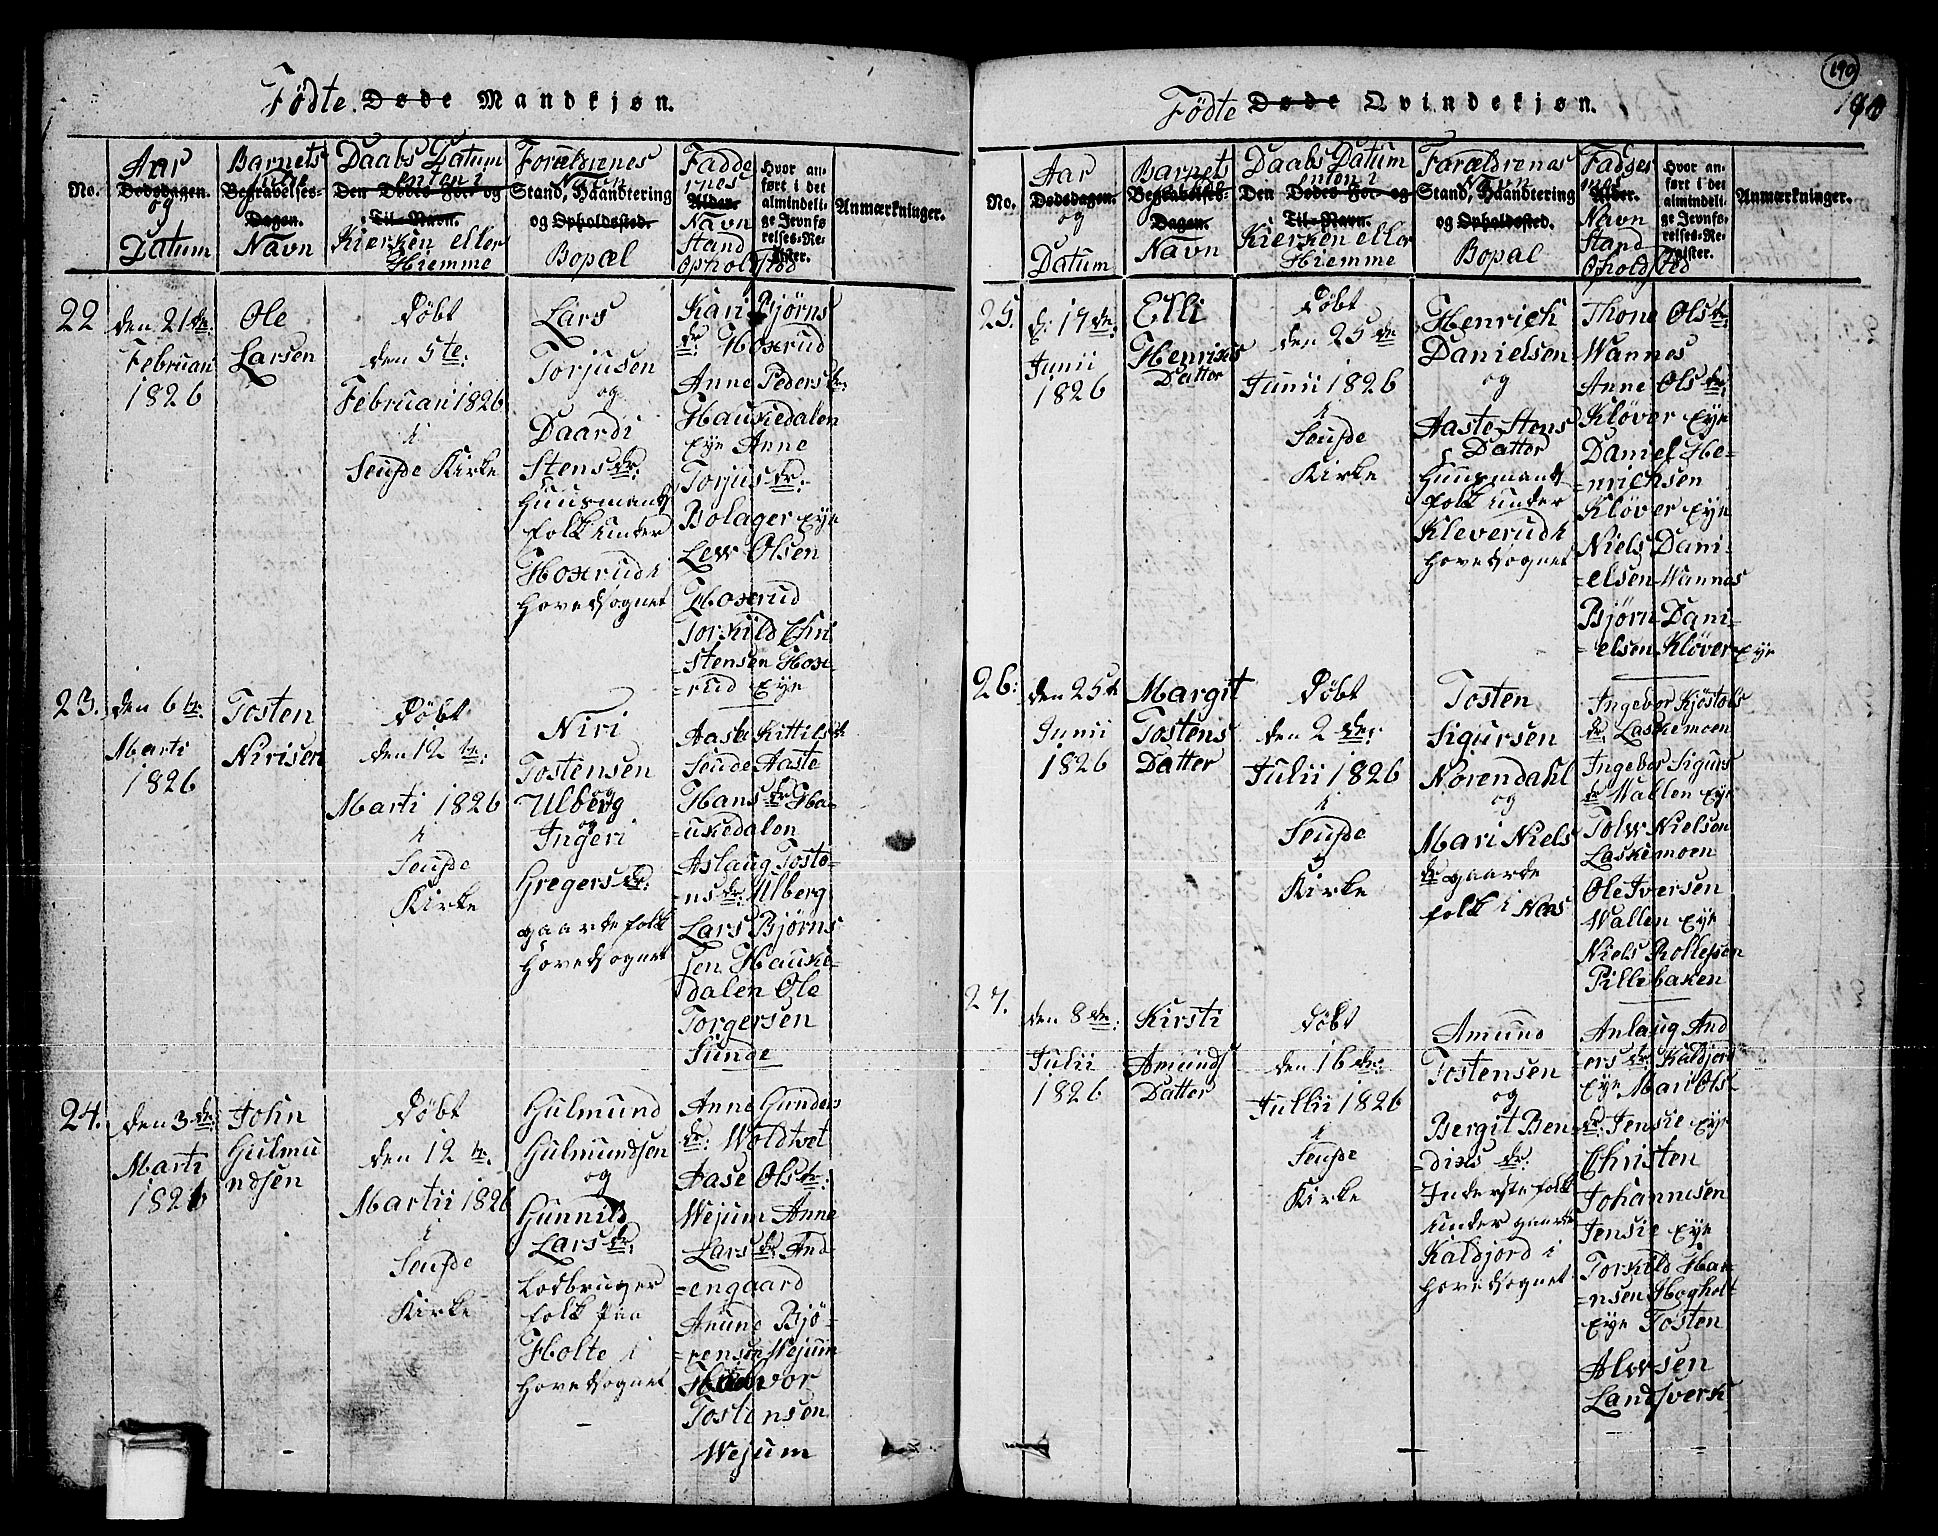 Fødte. Døde Mandkjøn.
No.
Aar
Dødsdagen.
og
Datum
Barnets
Begravelses-
Dagen.
Navn
Daabs Datum
enten i
Den Dødes For- og
Til-Navn.
Kierken eller
Hiemme
Forældrenes
Navn
Stand, Haandtering
og Opholdssted.
Bopæl
Fadde
rnes
Alder.
Navn
Stand
Opholdsted
Hvor an-
ført i det
almindeli-
ge Jevnfø-
relses-Re-
gister.
Anmærkninger.
22
den 21de
Februari
1826
Ole
Larsen
Døbt
den 5te:
Februari 1826
i
Seufde Kirke
Lars
Torjusen
og
Daardi
Stens dr:
Huusmands
folk under
Hoxrud i
Hovedsognet
Kari Bjørns
dr: Hoxrud
Anne Peders dr
Haukedalen
Eye Anne
Torjus dr:
Bolager Eye
Lew Olsen
Hoxrud
Torkild Chri
stensen Hox=
=rud Eye
23.
den 6te
Marti
1826
Tosten
Nirisen
Døbt
den 12te:
Marti 1826
i
Seufde
Kirke
Niri
Tostensen
Ulberg
og
Ingeri
Gregers dr:
gaardefolk
Hovedsognet
Aaste Kittils dr
Seude Aaste
Hans dr Ha=
=ukedalen
Aslaug Toste=
=ns dr Ulberg
Lars Bjørns
sen Hauke=
dalen Ole
Torgersen
Sunde
24.
den 3de
Marti
1826
John
Gulmu
ndsen
Døbt
den 12te.
Martii 1826
i
Seufde
Kirke
Gulmund
Gulmundsen
og
Gunnild
Lars dr:
Lodbruger
folk paa
Holte i
Hovedsognet
Anne Gunders
dr: Woldtvet
Aase Ols dr:
Wejum Anne
Lars dr And=
=engaard
Amund Bjø=
=rensen Wejum
Halvor
Tostensen
Wejum
190
190
Fødte Døde Qvindekjøn.
No.
Aar
Dødsdagen.
og
Datum
Barnets
Begravelses-
Dagen.
Navn
Daabs Datum
enten i
Den Dødes For- og
Til-Navn.
Kierken eller
Hiemme
Forældrenes
Navn
Stand, Haandtering
og Opholdssted.
Bopal
Alder.
Navn
Stand
Opholdsted
Hvor an-
ført i det
almindeli-
ge Jevnfø-
relses-Re-
gister.
Anmærkninger.
25.
d. 17de
Junii
1826
Elli
Henriks
Datter
Døbt
den 25de
Junii 1826
i
Seufde
Kirke
Henrich
Danielsen
og
Aaste Stens
Datter
Huusmands
folk under
Kleverud i
Hovedsognet
Thone Ols dr
Wannes
Anne Ols dr
Kløver Eye
Daniel He=
=nrichsen
Kløver Eye
Niels Dani=
=elsen Wannes
Bjørn Dani=
=elsen Kløver Eye
26:
den 25de
Junii
1826
Margit
Tostens
Datter
Døbt
den 2der
Julii 1826
i
Seufde
Kirke
Tosten
Sigursen
Norendahl
og
Mari Niels
dr gaarde
folk i Næs
Ingebor Kjøstols
dr: Laskemoen
Ingebor Sigurs
dr Wallen Eye
Tolw Nielsen
Laskemoen
Ole Iversen
Wallen Eye
Niels Rollefsen
Pillebaken
27.
den 8de:
Julii
1826
Kirsti
Amunds
Datter
Døbt
den 16de:
Jullii 1826
i
Seufde
Kirke
Amund
Tostensen
og
Bergit Ben
=diks dr:
Inderstefolk
under gaarde
Kaldjord i
Hovedsognet
Anlaug And
ers dr: Kaldjord
Eye Mari Ols
dr: Jensie Eye
Christen
Johannesen
Jensie Eye
Torkild Han=
=nsen Hogholt
Eye Tosten
Alwsen
Landsverk